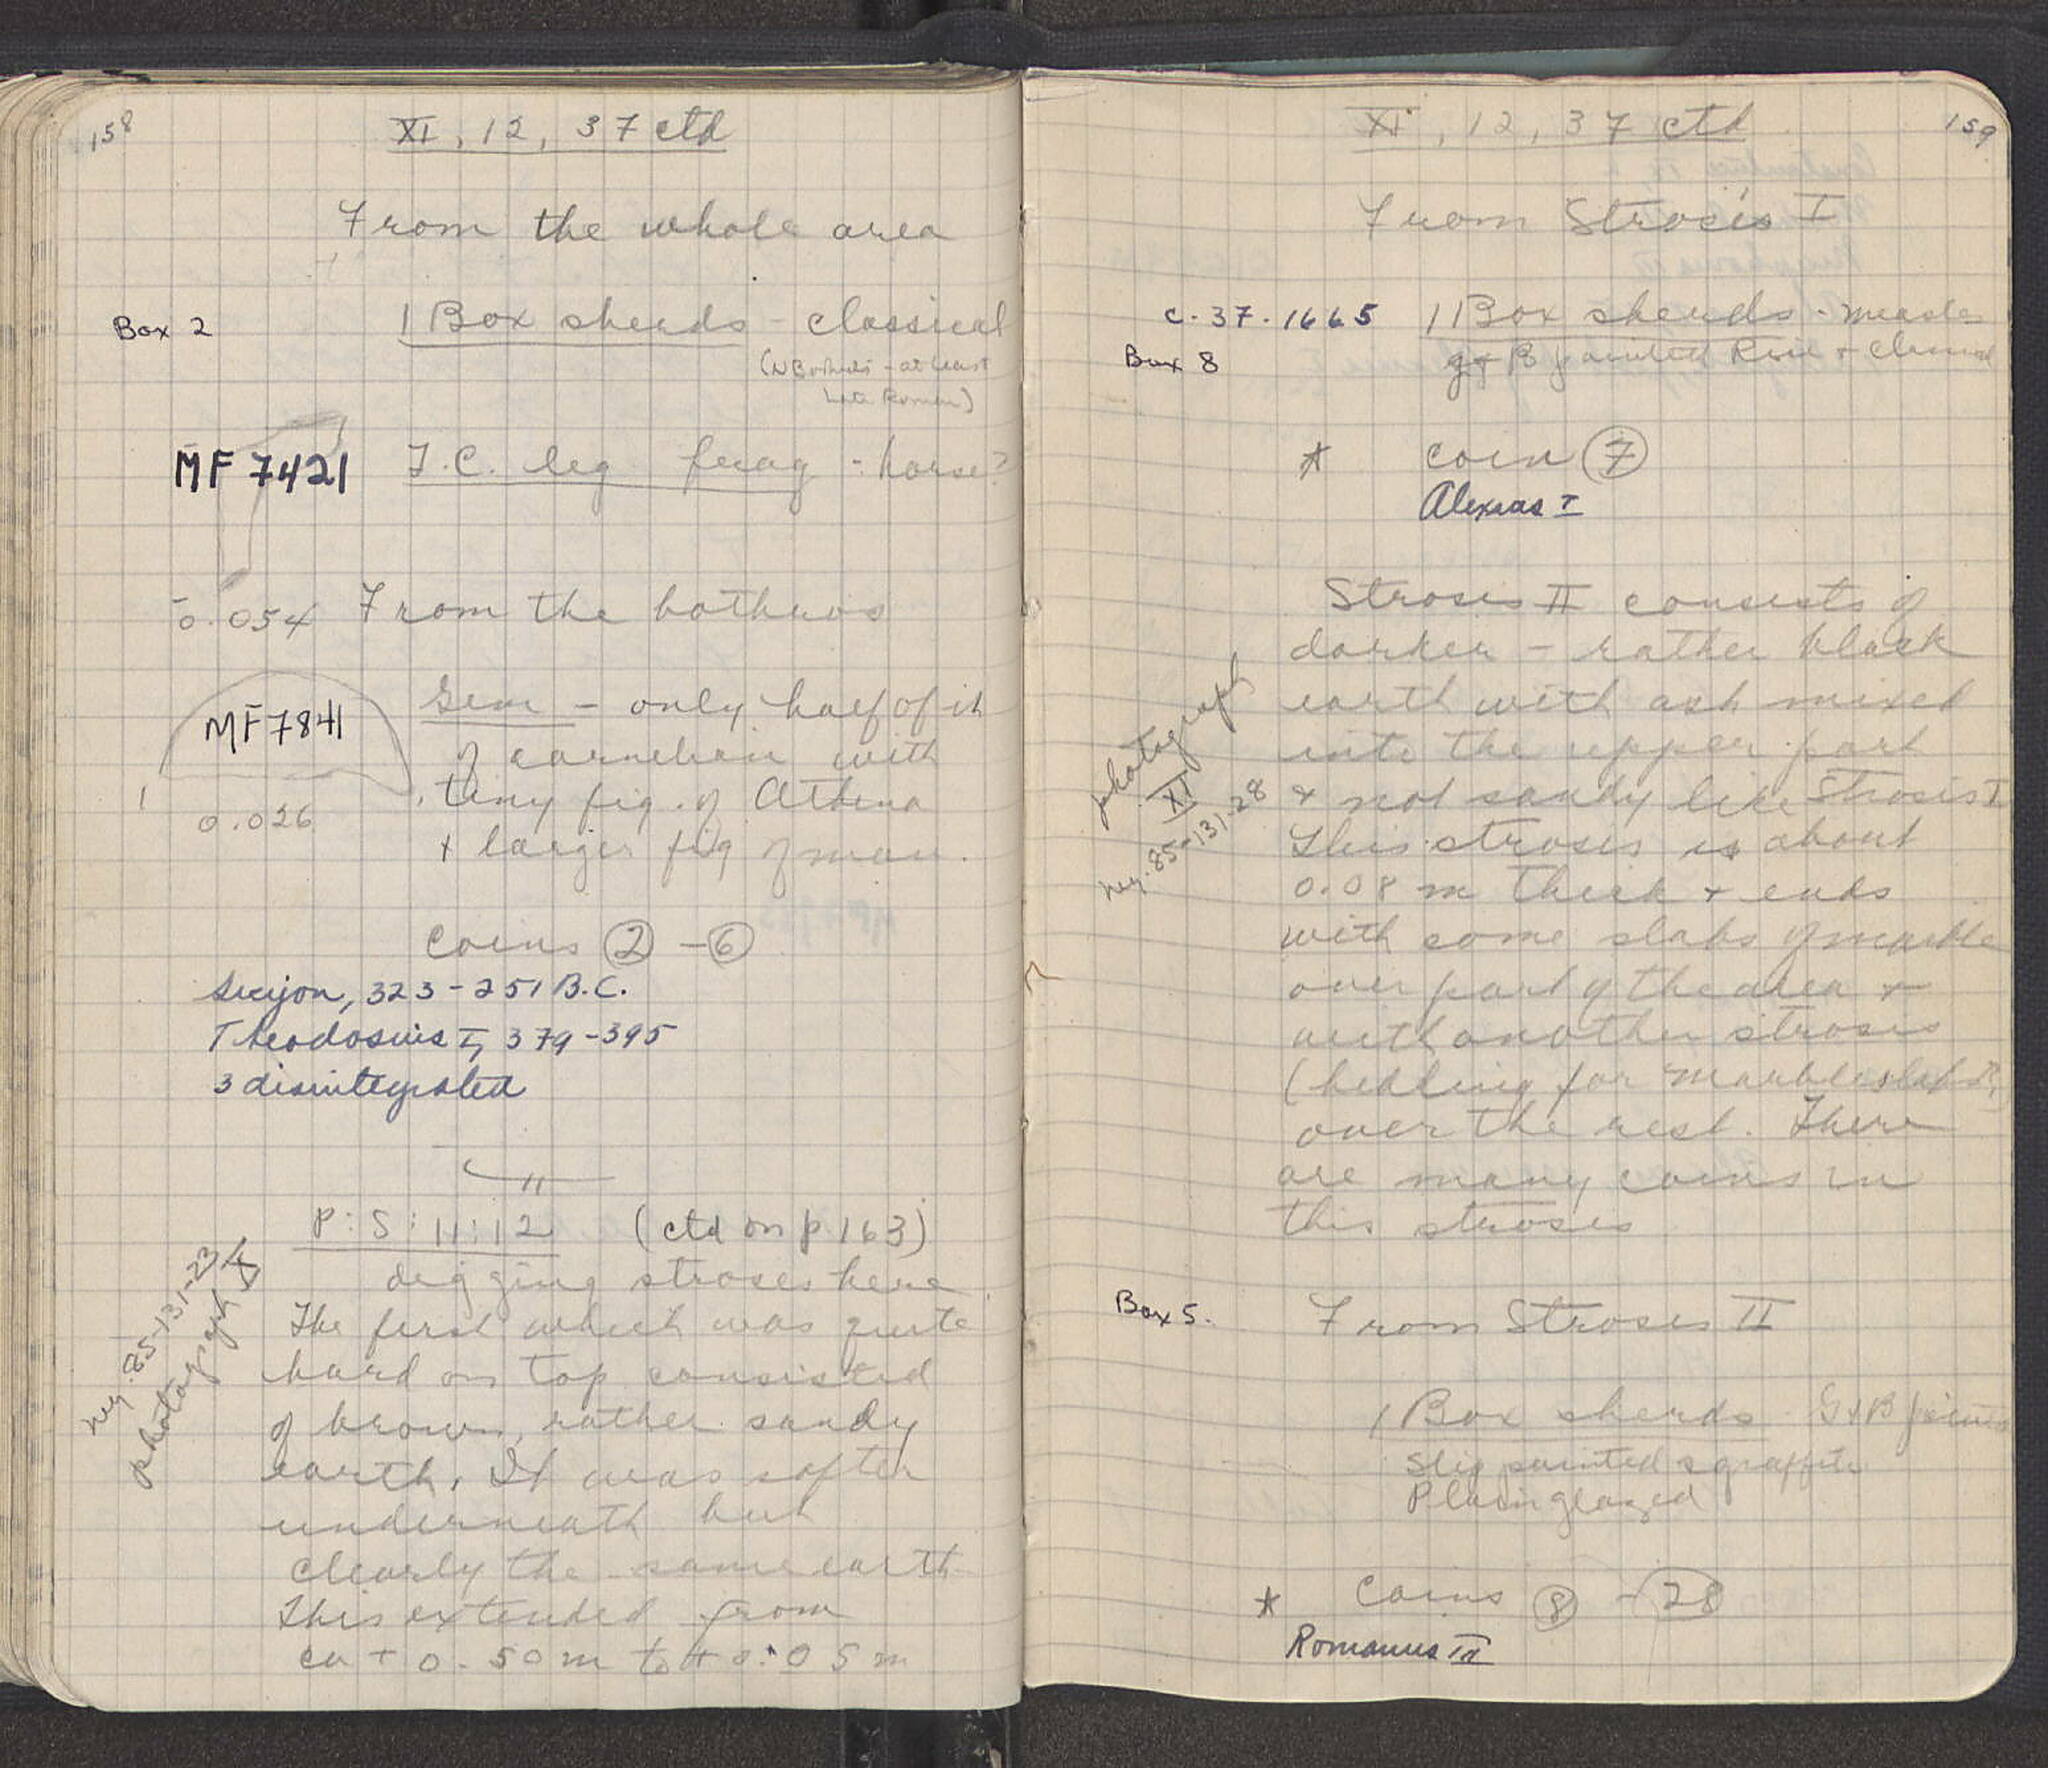 158
XI, 12, 37 ctd
From the whole area
Box 2
1 Box sherds - classical
(NB - at least
Late Roman)
MF 7421
T.C. leg frag : horse?
0.054
From the bothros
MF 7841
Gem - only half of it
of carnelian with
tiny fig. of Athena
+ larger fig of man.
0.026
Coins 2 - 6
Sicyon, 323-251 B.C.
Theodosius I, 379-395
3 disintegrated
P:S:11:12 (ctd on p 163)
neg. 85-131-23
photograph XI
digging stroses here.
The first which was quite
hard on top consisted
of brown, rather sandy
earth. It was softer
underneath but
clearly the same earth
This extended from
ca + 0.50 m to + 0.05 m
159
XI, 12, 37 ctd
From Strosis I
C.37.1665
Box 8
1 Box sherds -
G + B painted +
* coin 7
Alexius I
Strosis II consists of
darker - rather black
earth with ash mixed
into the upper part
& not sandy like Strosis I
This strosis is about
0.08 m thick + ends
with some slabs of marble
over part of the area +
with another strosis
(bedding for marble slabs?)
over the rest. There
are many coins in
this strosis
photograph
XI
neg. 85-131-28
Box 5.
From Strosis II
1 Box sherds G + B
Slip painted sgraffito
Plain glazed
* Coins 8 - 28
Romanus III